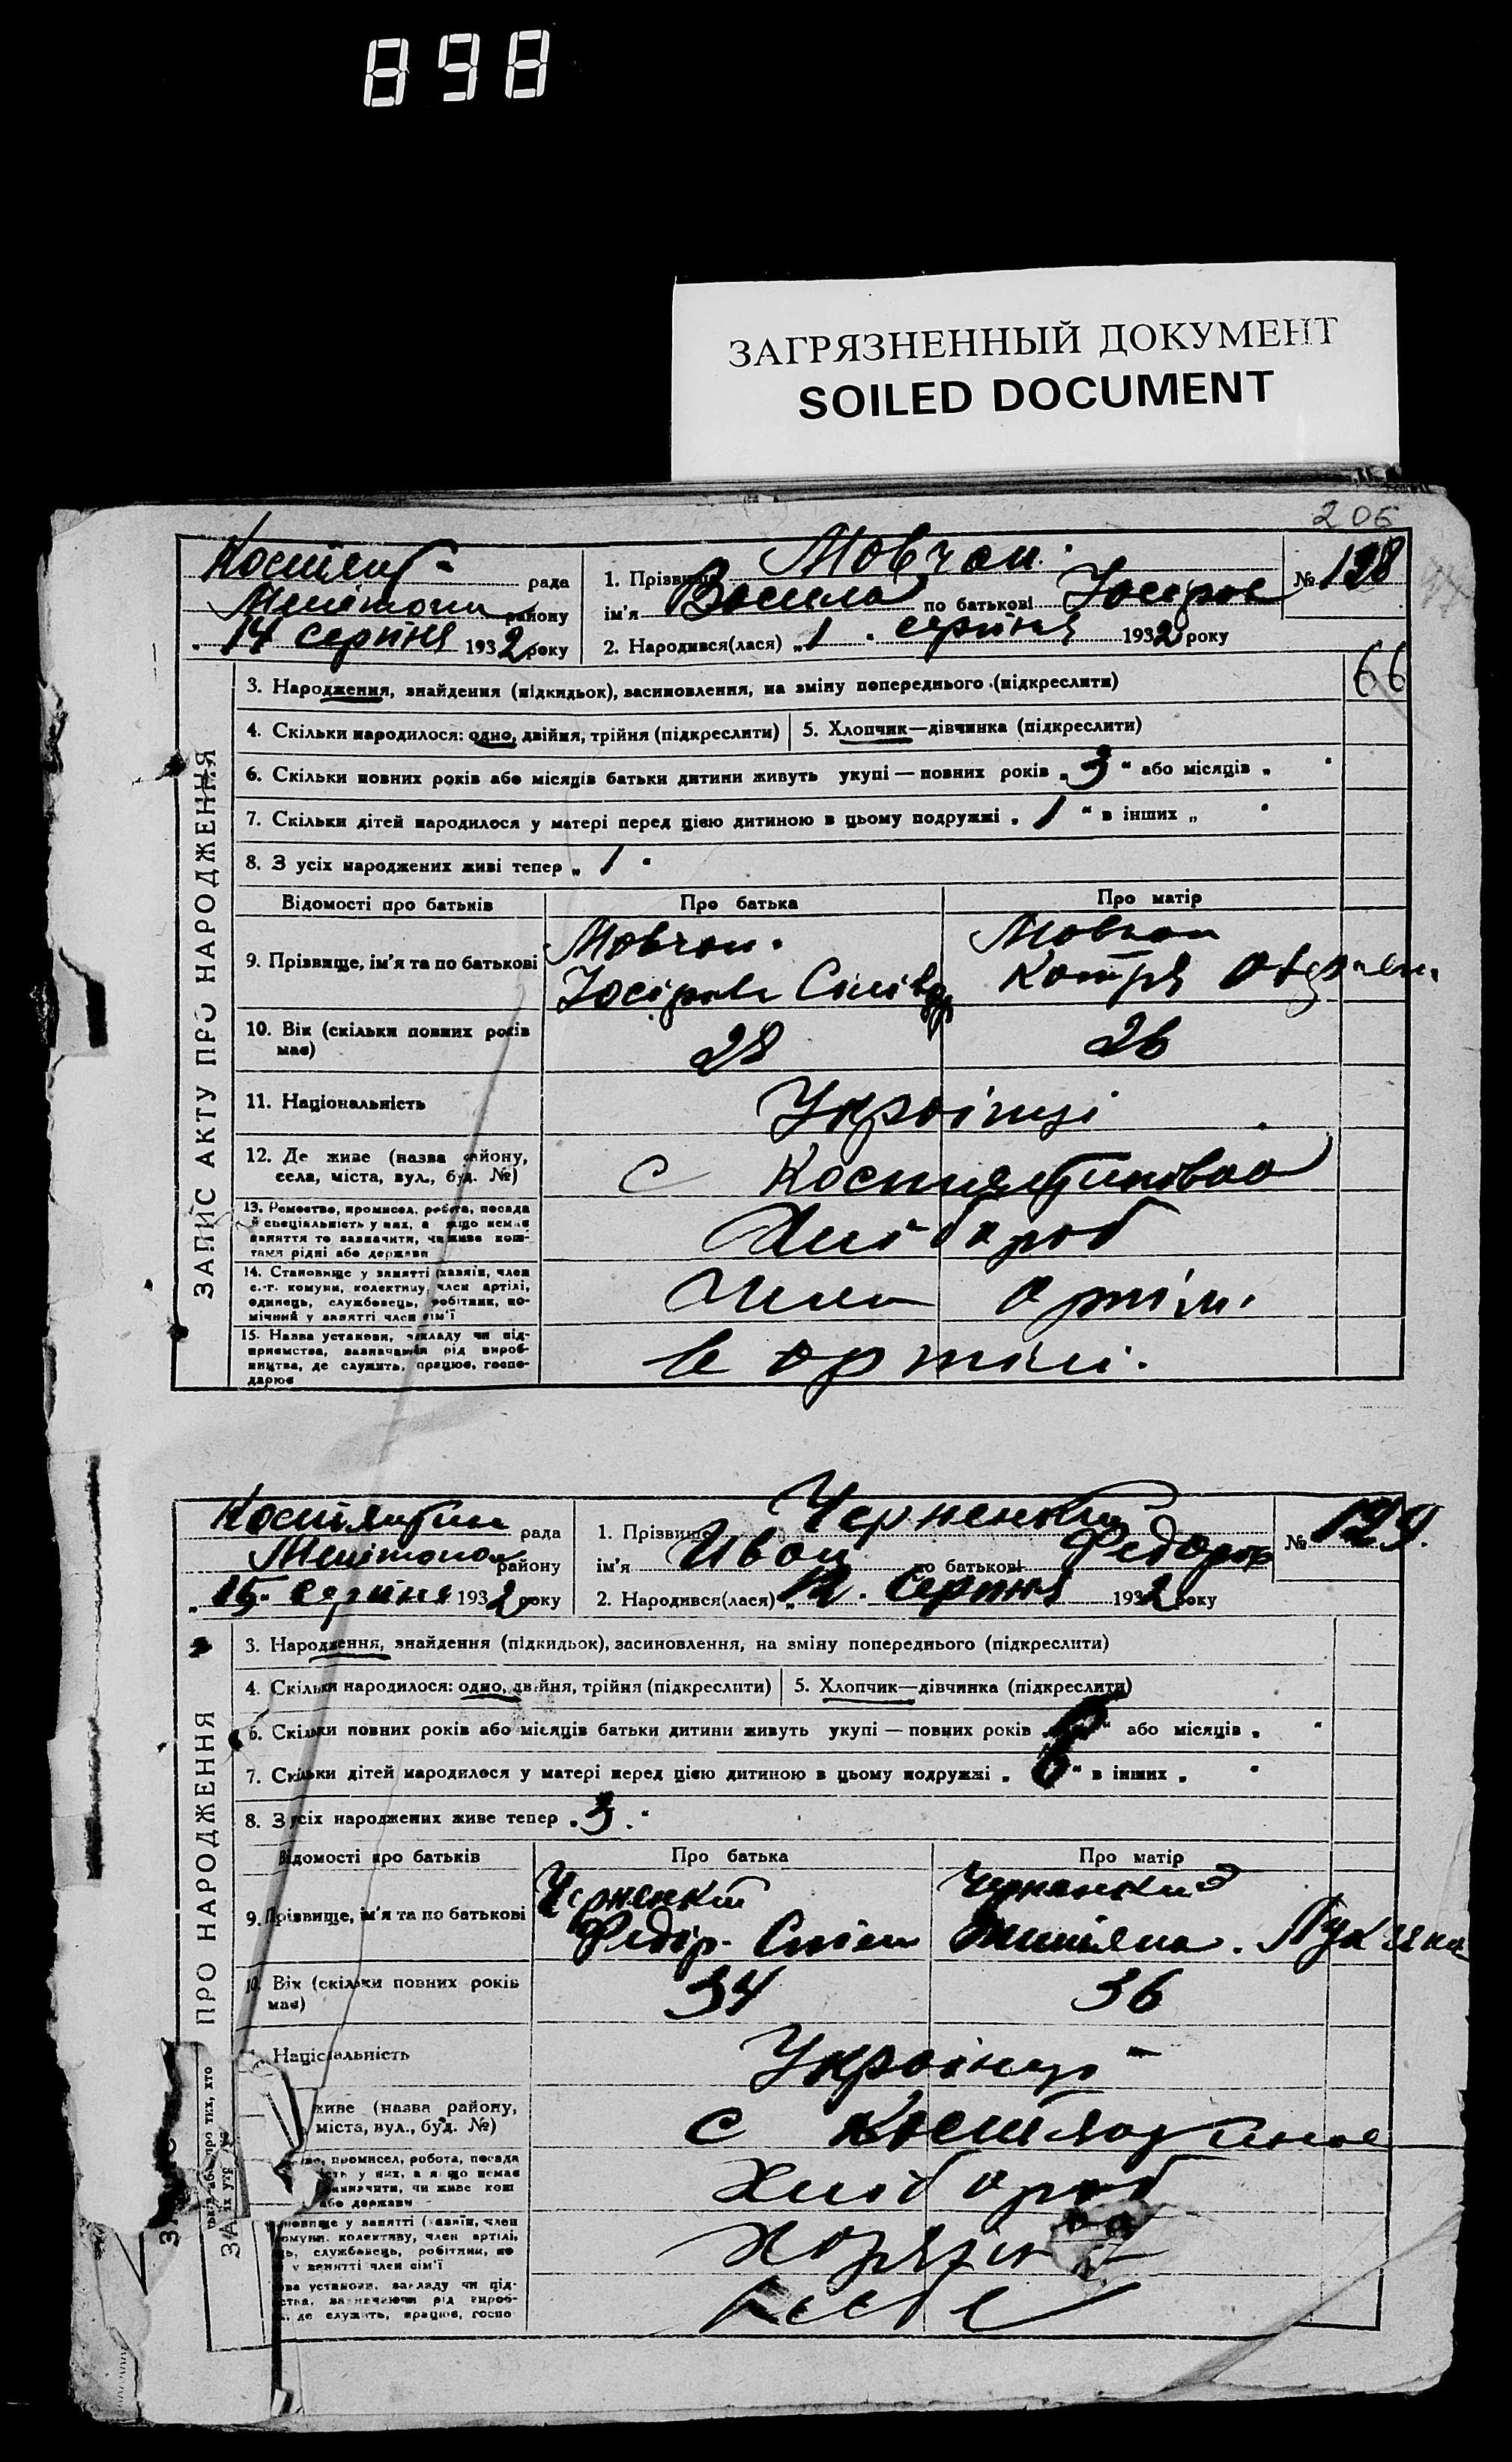 898
ЗАГРЯЗНЕННЫЙ ДОКУМЕНТ
SOILED DOCUMENT
206
рада
району
„14 серпня 1932 року
1. Прізвище Мовчан.
ім'я по батькові
2. Народився(лася) „1 . серпня 1932 року
№ 128
66
ЗАПИС АКТУ ПРО НАРОДЖЕННЯ
3. Народження, знайдення (підкидьок), засиновлення, на зміну попереднього (підкреслити)
4. Скільки народилося: одно, двійня, трійня (підкреслити)
5. Хлопчик—дівчинка (підкреслити)
6. Скільки повних років або місяців батьки дитини живуть укупі — повних років „3“ або місяців „ “
7. Скільки дітей народилося у матері перед цією дитиною в цьому подружжі „1“ в інших „ “
8. З усіх народжених живі тепер „1“
Відомості про батьків
Про батька
Про матір
9. Прізвище, ім'я та по батькові
Мовчан.
Мовчан
10. Вік (скільки повних років
має)
28
26
11. Національність
Українці
12. Де живе (назва району,
села, міста, вул., буд. №)
с
13. Ремество, промисел, робота, посада
й спеціальність у них, а якщо немає
заняття то зазначити, чи живе кош-
тами рідні або держави
Хлібороб
14. Становище у занятті (хазяїн, член
с.-г. комуни, колективу, член артілі,
одинець, службовець, робітник, по-
мічний у занятті член сім'ї
Член артіл.
15. Назва установи, закладу чи під-
приємства, зазначаючи рід вироб-
ництва, де служить, працює, госпо-
дарює
в артілі.
рада
району
„15. серпня 1932 року
1. Прізвище Черненкий
ім'я Иван по батькові Федоров
2. Народився(лася) „12. Серпня 1932 року
№ 129.
ПРО НАРОДЖЕННЯ
3. Народження, знайдення (підкидьок), засиновлення, на зміну попереднього (підкреслити)
4. Скільки народилося: одно, двійня, трійня (підкреслити)
5. Хлопчик—дівчинка (підкреслити)
6. Скільки повних років або місяців батьки дитини живуть укупі — повних років “ або місяців „ “
7. Скільки дітей народилося у матері перед цією дитиною в цьому подружжі „6“ в інших „ “
8. З усіх народжених живе тепер „3.“
Відомості про батьків
Про батька
Про матір
9. Прізвище, ім'я та по батькові
Черненкий
Федір.
10. Вік (скільки повних років
має)
34
36
Національність
Українці
живе (назва району,
міста, вул., буд. №)
с
промисел, робота, посада
у них, а якщо немає
зазначити, чи живе кош
або держави
Хлібороб
становище у занятті (хазяїн, член
комуни, колективу, член артілі,
службовець, робітник, по
у занятті член сім'ї
установи, закладу чи під-
зазначаючи рід вироб-
де служить, працює, госпо